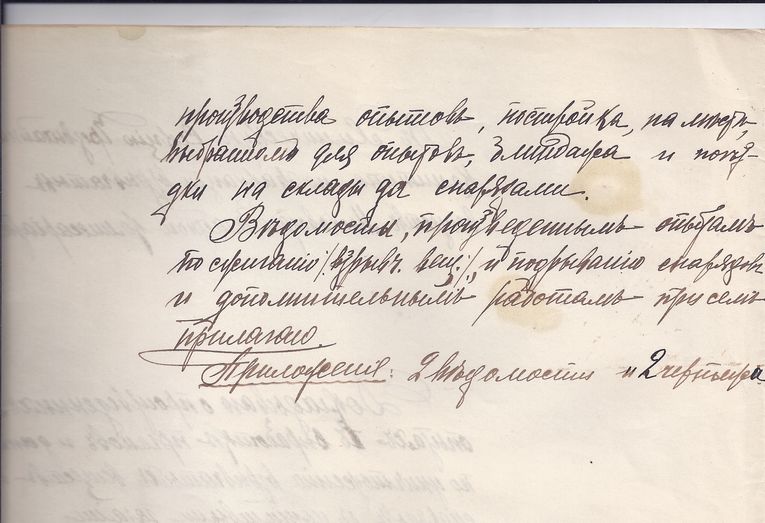 производства опытовъ, постройка, на мѣстѣ,
выбранномъ для опытовъ, блиндажа и поѣзд-
ки на склады за снарядами.
Вѣдомость, произведеннымъ опытамъ
по сжиганію /взрывч. вещ./, и подрыванію снарядовъ
и дополнительнымъ работамъ при семъ
прилагаю.
Приложеніе: 2 вѣдомости и 2 чертежа